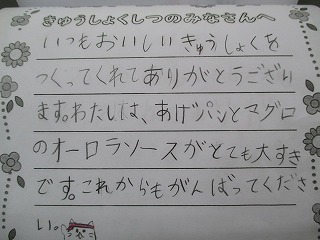 きゅうしょくしつのみなさんへ
いつもおいしいきゅうしょくを
つくってくれてありがとうござい
ます。わたしは、あげパンとマグロ
のオーロラソースがとても大すき
です。これからもがんばってくださ
い。